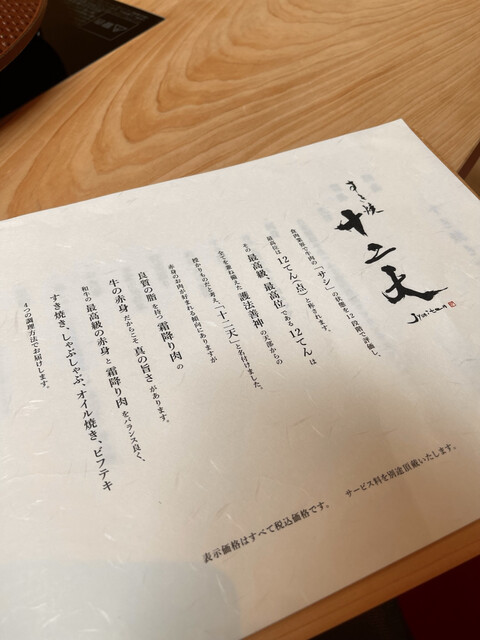 すき焼
十二天
Jyuniten
食肉業界で牛肉の「サシ」の状態を12段階で評価し、
最高位は12てん(点)と称されます。
その最高級、最高位である12てんは
全てを兼ね備えた護法善神の天部からの
授かりものだと考え「十二天」と名付けました。
赤身のお肉が好まれる傾向にありますが
良質の脂を持つ霜降り肉の
牛の赤身だからこそ真の旨さがあります。
和牛の最高級の赤身と霜降り肉をバランス良く、
すき焼き、しゃぶしゃぶ、オイル焼き、ビフテキ
4つの調理方法でお届けします。
サービス料を別途頂戴いたします。
表示価格はすべて税込価格です。